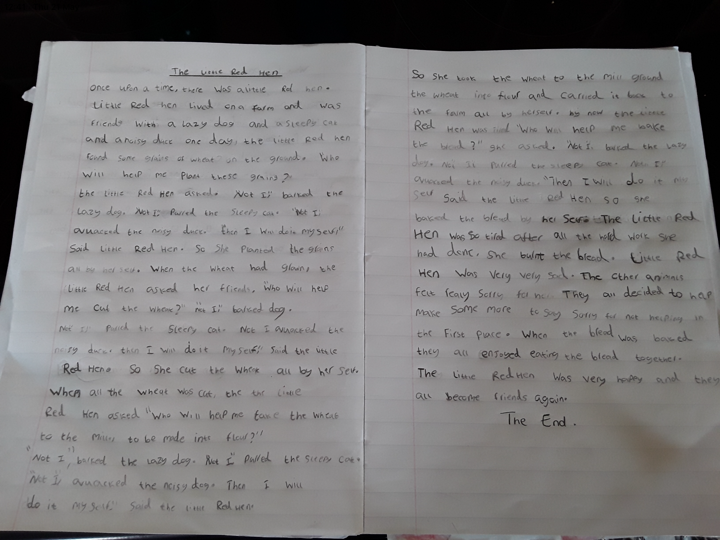 The Little Red Hen
once upon a time, there was a little Red hen.
Little Red hen lived on a farm and was
friends with a lazy dog and a sleepy cat
and a noisy duck one day, the little Red hen
found some grains of wheat on the ground. Who
will help me plant these grains?
the little Red Hen asked. Not I" barked the
lazy dog. Not I" Purred the sleepy cat. "Not I.
quacked the noisy duck. then I will do it myself"
Said little Red Hen. So She Planted the grains
all by herself. When the wheat had grown, the
little Red Hen asked her friends. "Who will help
me cut the wheat?" "Not I" barked dog.
Not I. Purred the Sleepy cat. Not I quacked the
noisy duck. then I will do it myself" Said the little
Red Hen. So She cut the wheat all by her self.
When all the wheat was cut, the the little
Red Hen asked "Who will help me take the wheat
to the mill to be made into flour?"
"Not I", barked the lazy dog. Not I" Purred the sleepy cat.
"Not I" quacked the noisy dog. Then I will
do it myself" Said the little Red Hen
So she took the wheat to the mill ground
the wheat into flour and carried it back to
the farm all by herself. by now the little
Red Hen was tired "Who will help me bake
the bread?" she asked. "Not I. barked the lazy
dog. Not I" purred the sleepy cat. Not I"
quacked the noisy duck. "Then I will do it my
self Said the little Red Hen so she
baked the bread by her Self. The Little Red
Hen was So tired after all the hard work she
had done. She burnt the bread. Little Red
Hen Was Very very Sad. The other animals
felt really Sorry for her. They all decided to help
make Some more to say Sorry for not helping in
the First Place. When the bread was baked
they all enjoyed eating the bread together.
The Little Red Hen was very happy and they
all become friends again.
The End.